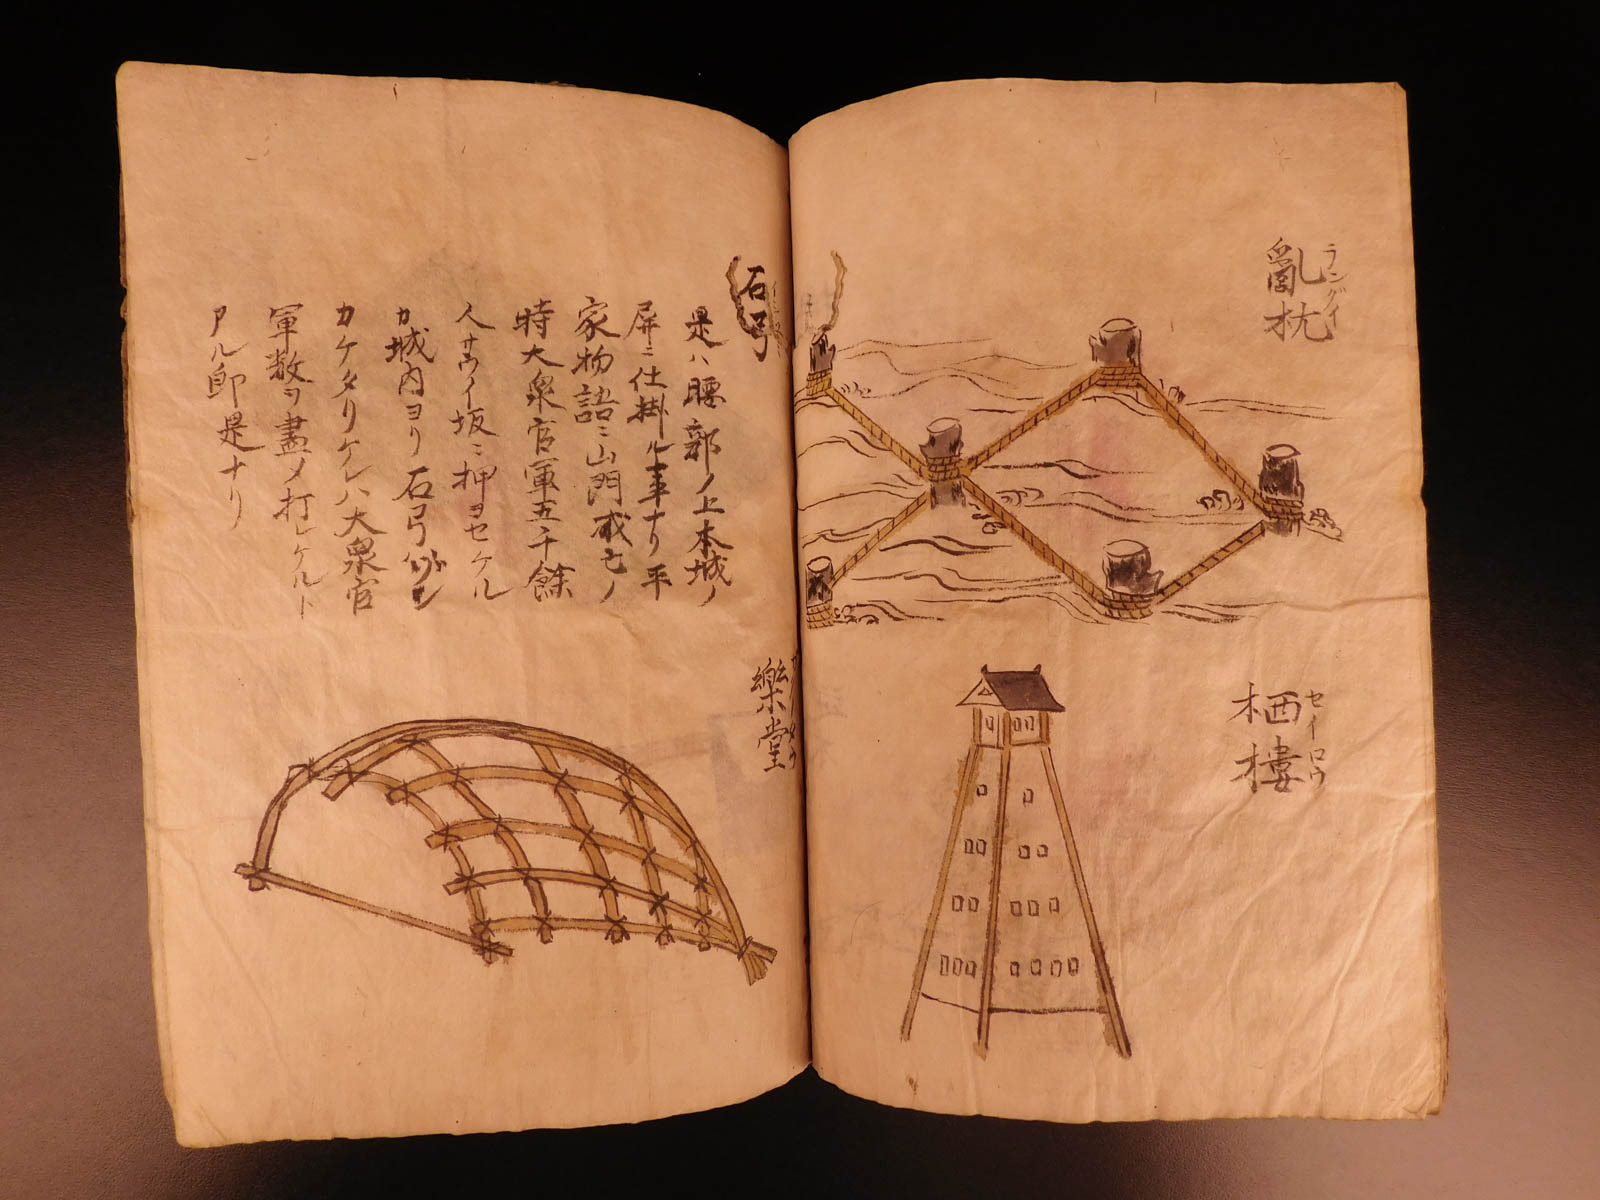 亂杭
ラングイ
栖樓
セイロウ
石弓
是ハ腰郭ノ上本城ノ
屏ニ仕掛ル事ナリ平
家物語ニ山門滅亡ノ
時大衆官軍五千餘
人サウイ坂ニ押ヨセケル
カ城内ヨリ石弓ハヅシ
カケタリケレハ大衆官
軍数ヲ盡メ打レケルト
アル即是ナリ
樂堂